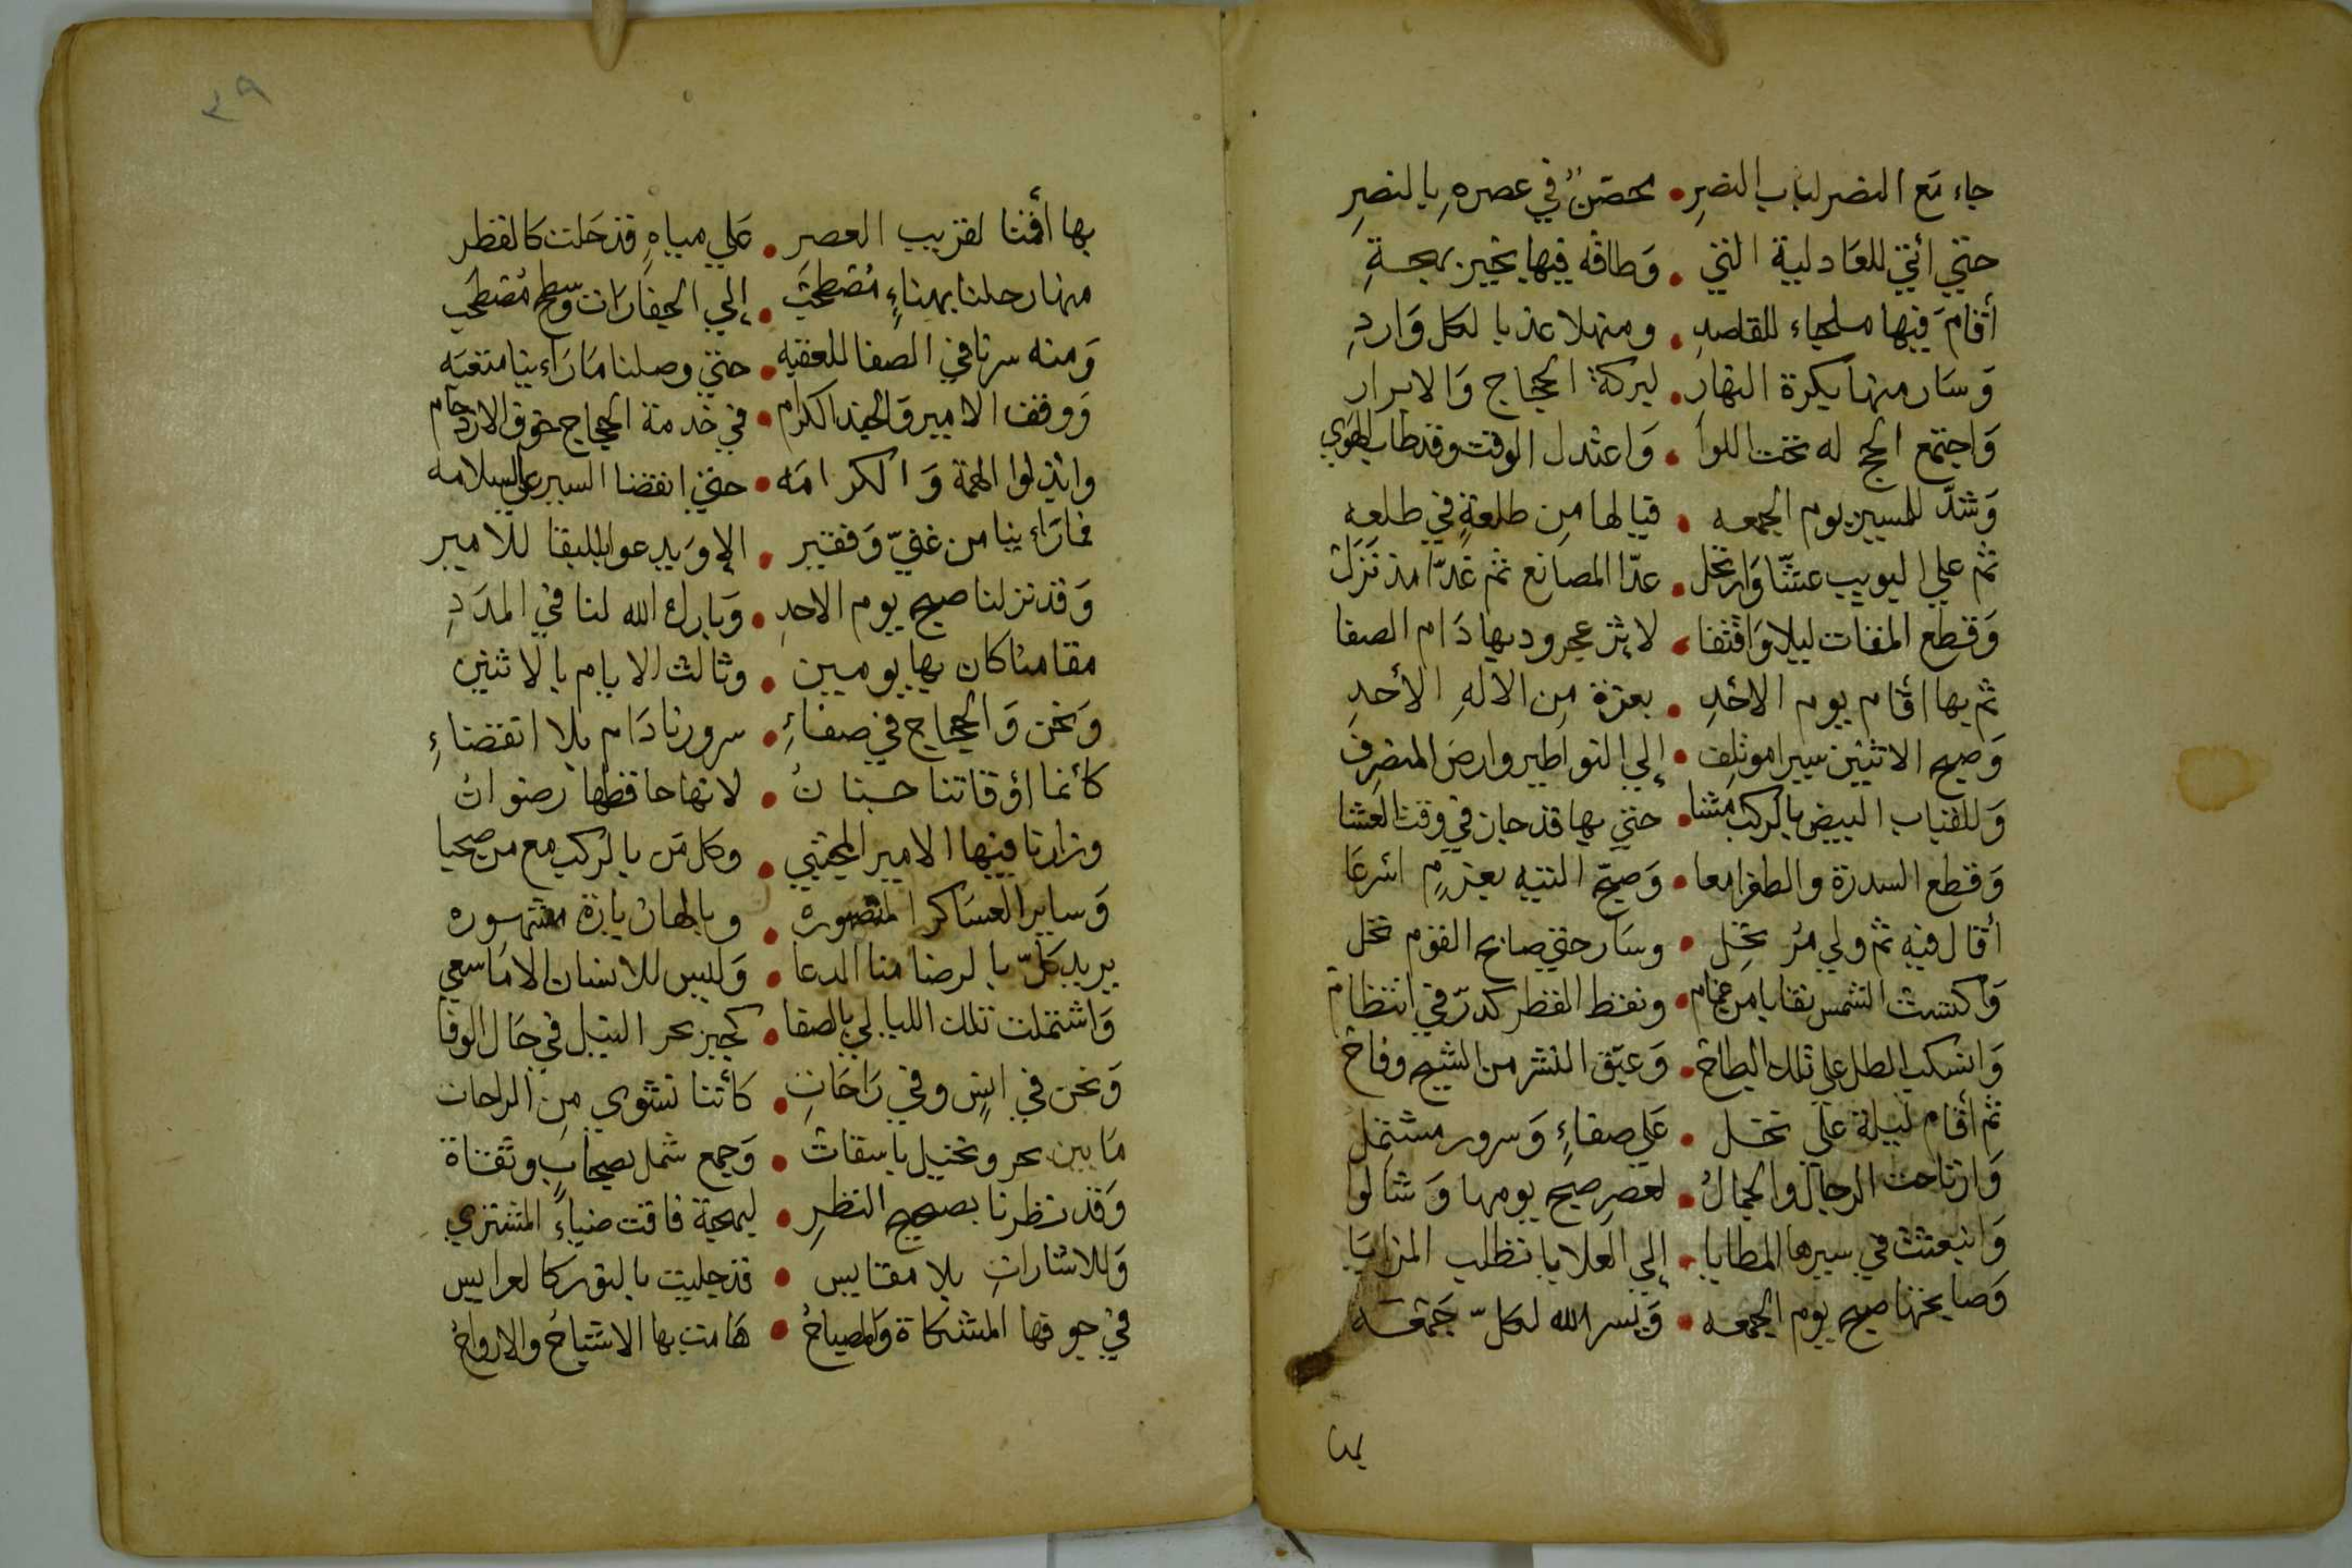 جاء مع النصر لباب النصرِ • محصّنٌ في عصرهِ بالنصرِ
حتي أتي للعادلية التي • وطافه فيها بخير بهجةِ
أقام فيها ملجاء للقاصدِ • ومنهلا عذبا لكل واردِ
وسار منها بكرة النهارِ • لبركة الحجاج والابرارِ
واجتمع الحج له تحت اللوا • واعتدل الوقت وقد طاب الهوي
وشدّ للمسير يوم الجمعه • فيالها من طلعةٍ في طلعه
ثم علي البويب عشّا وارتحل • عدّا المصانع ثم غدّا مذ نزل
وقطع المفات ليلا واقتفا • لابئر عجرود بها دام الصفا
ثم بها اقام يوم الاحدِ • بعزة من الالهِ الأحدِ
وصبح الاثنين سيرا موتلف • إلي النواطير وارض المنصرف
وللقباب البيض بالركب مشا • حتي بها قد حان في وقت العشا
وقطع السدرة والطفرا معا • وصبّح التيه بعزمٍ اسرعا
أقال فيه ثم ولي مرتحل • وسار حتي صابح القوم نخل
واكتست الشمس نقابا من غمام • ونقط القطر كدرّ في انتظام
وانسكب الطل علي تلك البطاح • وعبّق النشر من الشيح وفاح
ثم أقام ليلة علي نخل • علي صفاءٍ وسرور مشتمل
وارتاحت الرجال والجمالُ • لعصر صبح يومها وشالوا
وانبعثت في سيرها المطايا • إلي العلايا تطلب المزايا
وصابحتها صبح يوم الجمعه • ويسر الله لكلّ جمعه
بها
٣٩
بها أقمنا لقريب العصر • علي مياهٍ قد حلت كالقطر
منها رحلنا بهناءٍ مصطحب • إلي الحفارات وسطح مصطحب
ومنه سرنا في الصفا للعقبه • حتي وصلنا ما راءينا متعبه
ووقف الامير والجند الكرام • في خدمة الحجاج خوف الازدحام
وابذلوا الهمة والكرامه • حتي انقضا السير علي السلامه
فما راءينا من غنيّ وفقير • الا ويدعوا بالبقا للامير
وقد نزلنا صبح يوم الاحدِ • وبارك الله لنا في المددِ
مقامنا كان بها يومين • وثالث الايام بالاثنين
ونحن والحجاج في صفاءِ • سرورنا دام بلا انقضاءِ
كأنما اوقاتنا جنانُ • لانها حافظها رضوانُ
وزارنا فيها الامير المجتبي • وكل من بالركب مع من صحبا
وساير العساكر المنصوره • وبالها زيارة مشهوره
يريد كلّ بالرضا منا الدعا • وليس للانسان الا ما سعي
واشتملت تلك الليالي بالصفا • كجبر بحر النيل في حال الوفا
ونحن في انسٍ وفي راحاتِ • كأننا نشوي من الراحات
ما بين بحر ونخيل باسقات • وجمع شمل بصحابٍ وثقاة
وقد نظرنا بصحيح النظرِ • لبهجة فاقت ضياءً المشتري
وللاشاراتِ بلا مقايس • قد جليت بالنور كالعرايس
في جوفها المشكاة والمصباحُ • هامت بها الاشباحُ والارواحُ